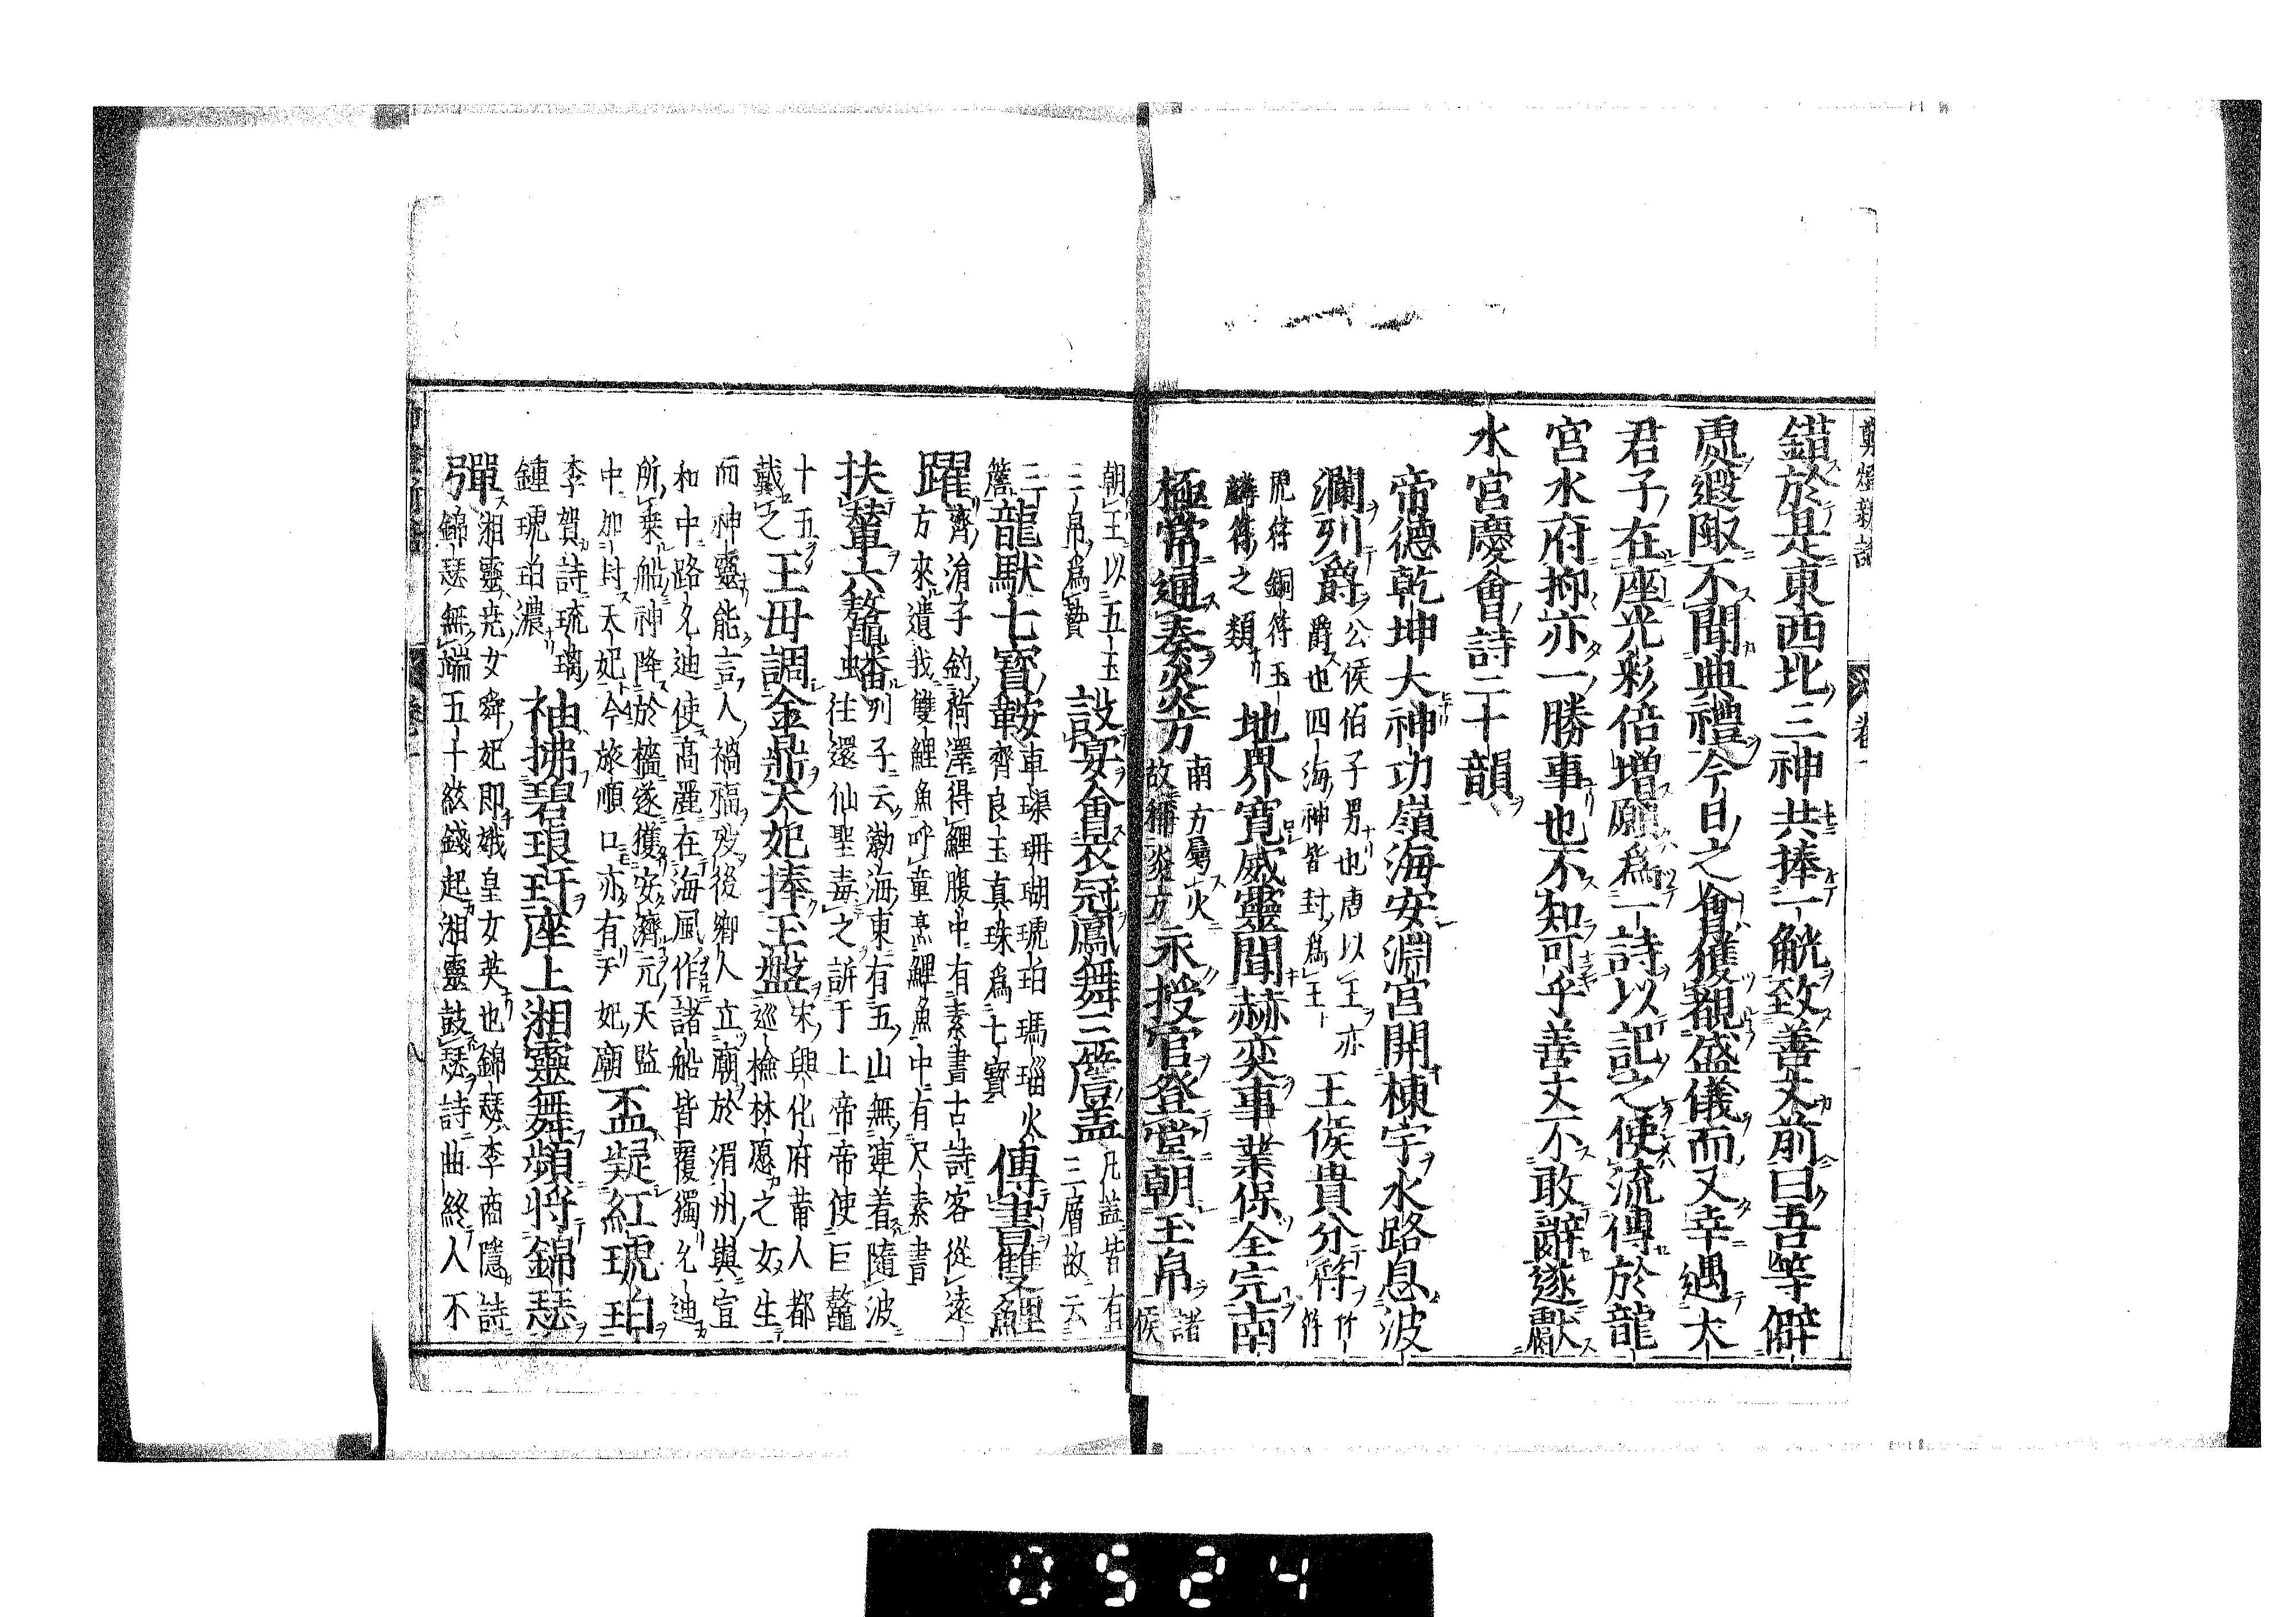 錯於是東西北三神共捧一觥致善文前曰吾等僻
處遐陬不聞典禮今日之會獲覩盛儀而又幸遇大
君子在座光彩倍增願為一詩以記之使流傳於龍
宮水府抑亦一勝事也不知可乎善文不敢辭遂獻
水宮慶會詩二十韻
帝德乾坤大神功嶺海安淵宮開棟宇水路息波
瀾列爵公侯伯子男也唐以王亦
爵也四海神皆封為王王侯貴分符竹符
虎符銅符玉
麟符之類地界寬威靈聞赫奕事業保全完南
極常通奏炎方南方屬火
故稱炎方永授官登堂朝玉帛諸侯
朝王以五玉
三帛為贄設宴會衣冠鳳舞三簷蓋凡蓋皆有
三層故云三
簷龍馱七寶鞍車璖珊瑚琥珀瑪瑙火
齊良玉真珠為七寶傳書雙鯉魚
躍齊涓子釣荷澤得鯉腹中有素書古詩客從遠
方來遺我雙鯉魚呼童烹鯉魚中有尺素書
扶輦六鰲蟠列子云渤海東有五山無連着隨波
往還仙聖毒之訴于上帝帝使巨鼇
十五
戴之王母調金鼎天妃捧玉盤宋興化府莆人都
巡檢林愿之女生
而神靈能言人禍福歿後鄉人立廟於湄州與宣
和中路允迪使高麗在海風作諸船皆覆獨允迪
所乘船神降於檣遂獲安濟元天監
中加封天妃今旅順口亦有天妃廟盃凝紅琥珀
李賀詩琉璃
鍾琥珀濃袖拂碧琅玕座上湘靈舞頻將錦瑟
彈湘靈堯女舜妃即娥皇女英也錦瑟李商隱詩
錦瑟無端五十絃錢起湘靈鼓瑟詩曲終人不
0524